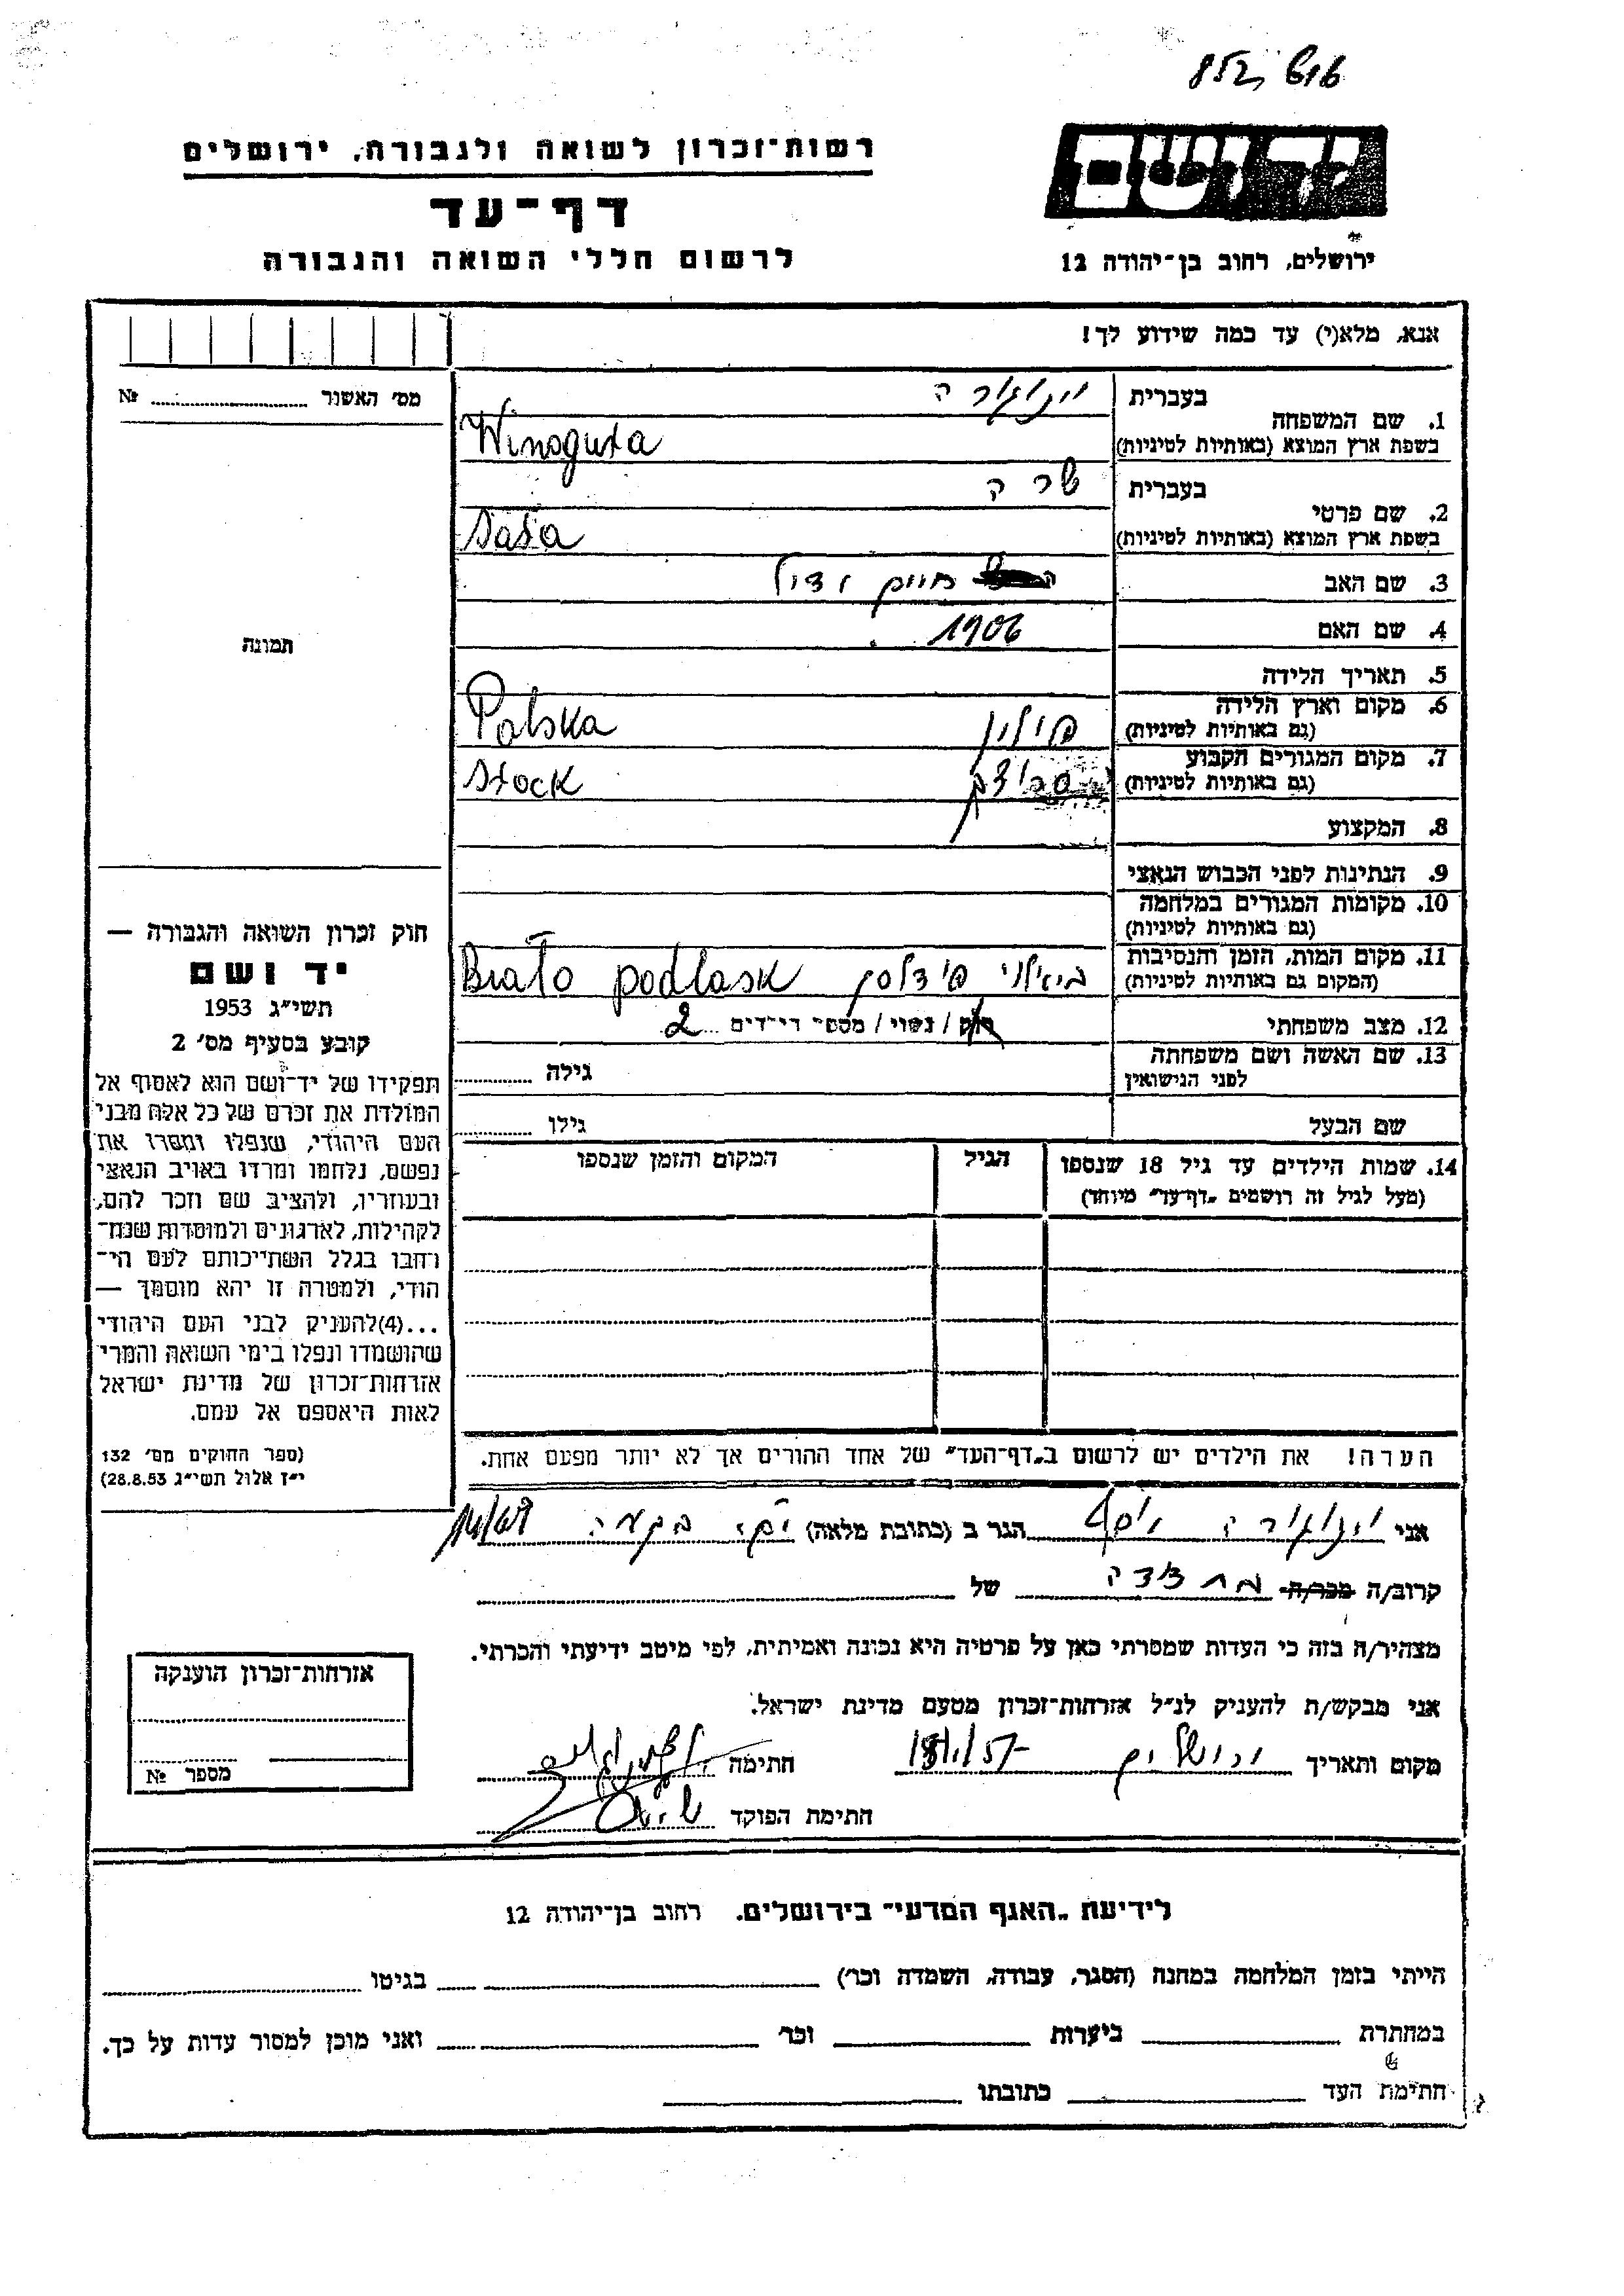 רשות־זכרון לשואה ולגבורה, ירושלים
דף־עד
לרשום חללי השואה והגבורה
יד ושם
ירושלים, רחוב בן־יהודה 12
אנא, מלא(י) עד כמה שידוע לך!
מס׳ האשור ........ №
תמונה
1. שם המשפחה בעברית וינוגורה
בשפת ארץ המוצא (באותיות לטיניות) Winogura
2. שם פרטי בעברית שרה
בשפת ארץ המוצא (באותיות לטיניות) Sara
3. שם האב חיים
4. שם האם 1906
5. תאריך הלידה
6. מקום וארץ הלידה פולין Polska
(גם באותיות לטיניות)
7. מקום המגורים הקבוע Stock
(גם באותיות לטיניות)
8. המקצוע
9. הנתינות לפני הכבוש הנאצי
10. מקומות המגורים במלחמה
(גם באותיות לטיניות)
11. מקום המות, הזמן והנסיבות Biało podlask
(המקום גם באותיות לטיניות)
12. מצב משפחתי רוק / נשוי / מספר הילדים 2
13. שם האשה ושם משפחתה גילה
לפני הנישואין
שם הבעל גילו
14. שמות הילדים עד גיל 18 שנספו הגיל המקום והזמן שנספו
(מעל לגיל זה רושמים „דף־עד״ מיוחד)
הערה! את הילדים יש לרשום ב„דף־העד״ של אחד ההורים אך לא יותר מפעם אחת.
חוק זכרון השואה והגבורה —
יד ושם
תשי״ג 1953
קובע בסעיף מס׳ 2
תפקידו של יד־ושם הוא לאסוף אל
המולדת את זכרם של כל אלה מבני
העם היהודי, שנפלו ומסרו את
נפשם, נלחמו ומרדו באויב הנאצי
ובעוזריו, ולהציב שם וזכר להם,
לקהילות, לארגונים ולמוסדות שנח־
רחבו בגלל השתייכותם לעם הי־
הודי, ולמטרה זו יהא מוסמך —
...(4)להעניק לבני העם היהודי
שהושמדו ונפלו בימי השואה והמרי
אזרחות־זכרון של מדינת ישראל
לאות היאספם אל עמם.
(ספר החוקים מס׳ 132
י״ז אלול תשי״ג 28.8.53)
אני וינוגורה יוסף הגר ב (כתובת מלאה)
קרוב/ה מכר/ה של
מצהיר/ה בזה כי העדות שמסרתי כאן על פרטיה היא נכונה ואמיתית, לפי מיטב ידיעתי והכרתי.
אני מבקש/ת להעניק לנ״ל אזרחות־זכרון מטעם מדינת ישראל.
מקום ותאריך ירושלים חתימה
חתימת הפוקד
אזרחות־זכרון הוענקה
מספר №
לידיעת „האגף המדעי״ בירושלים, רחוב בן־יהודה 12
הייתי בזמן המלחמה במחנה (הסגר, עבודה, השמדה וכר׳) בגיטו
במחתרת ביערות וכר׳ ואני מוכן למסור עדות על כך.
חתימת העד כתובתו